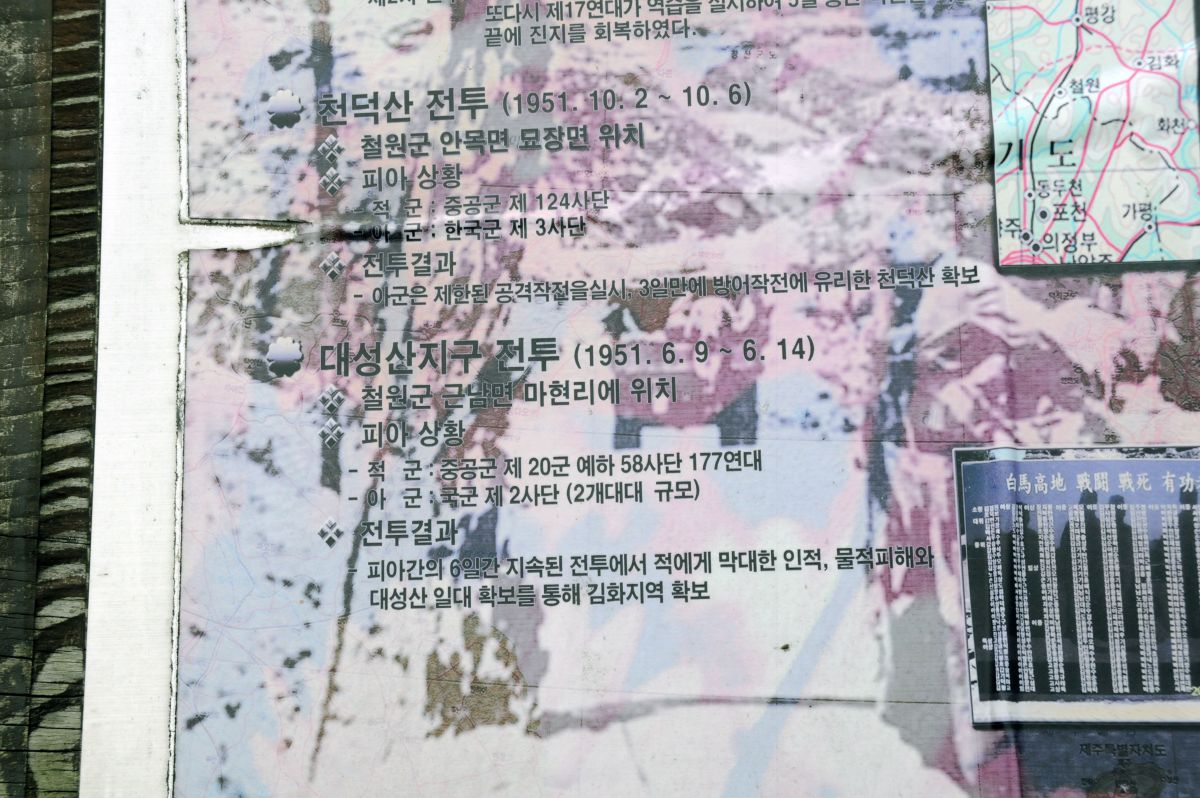 또다시 제17연대가 역습을 실시하여 5일
끝에 진지를 회복하였다.
천덕산 전투 (1951. 10. 2 ~ 10. 6)
철원군 안목면 묘장면 위치
피아 상황
- 적 군 : 중공군 제 124사단
- 아 군 : 한국군 제 3사단
전투결과
- 아군은 제한된 공격작전을실시, 3일만에 방어작전에 유리한 천덕산 확보
대성산지구 전투 (1951. 6. 9 ~ 6. 14)
철원군 근남면 마현리에 위치
피아 상황
- 적 군 : 중공군 제 20군 예하 58사단 177연대
- 아 군 : 국군 제 2사단 (2개대대 규모)
전투결과
- 피아간의 6일간 지속된 전투에서 적에게 막대한 인적, 물적피해와
대성산 일대 확보를 통해 김화지역 확보
평강
김화
철원
화천
기 도
동두천
포천
가평
의정부
白馬高地 戰鬪 戰死 有功
제주특별자치도